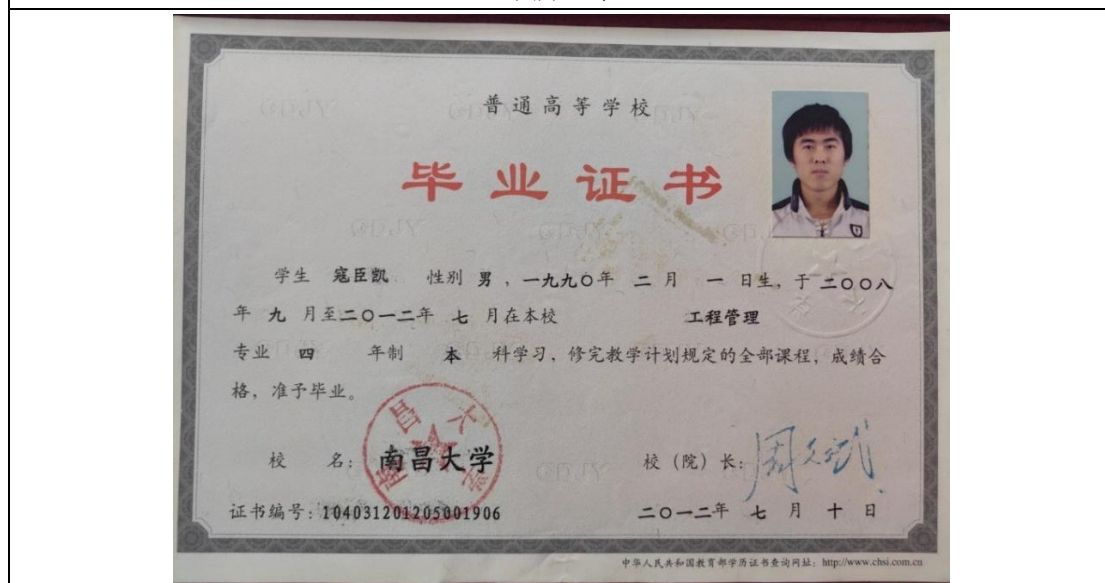 普通高等学校
毕业证书
学生 寇臣凯 性别 男，一九九〇年 二 月 一 日生，于 二〇〇八
年 九 月至二〇一二年 七 月在本校 工程管理
专业 四 年制 本 科学习，修完教学计划规定的全部课程，成绩合
格，准予毕业。
校 名：南昌大学
校（院）长：
证书编号：104031201205001906
二〇一二年 七 月 十 日
中华人民共和国教育部学历证书查询网址：http://www.chsi.com.cn